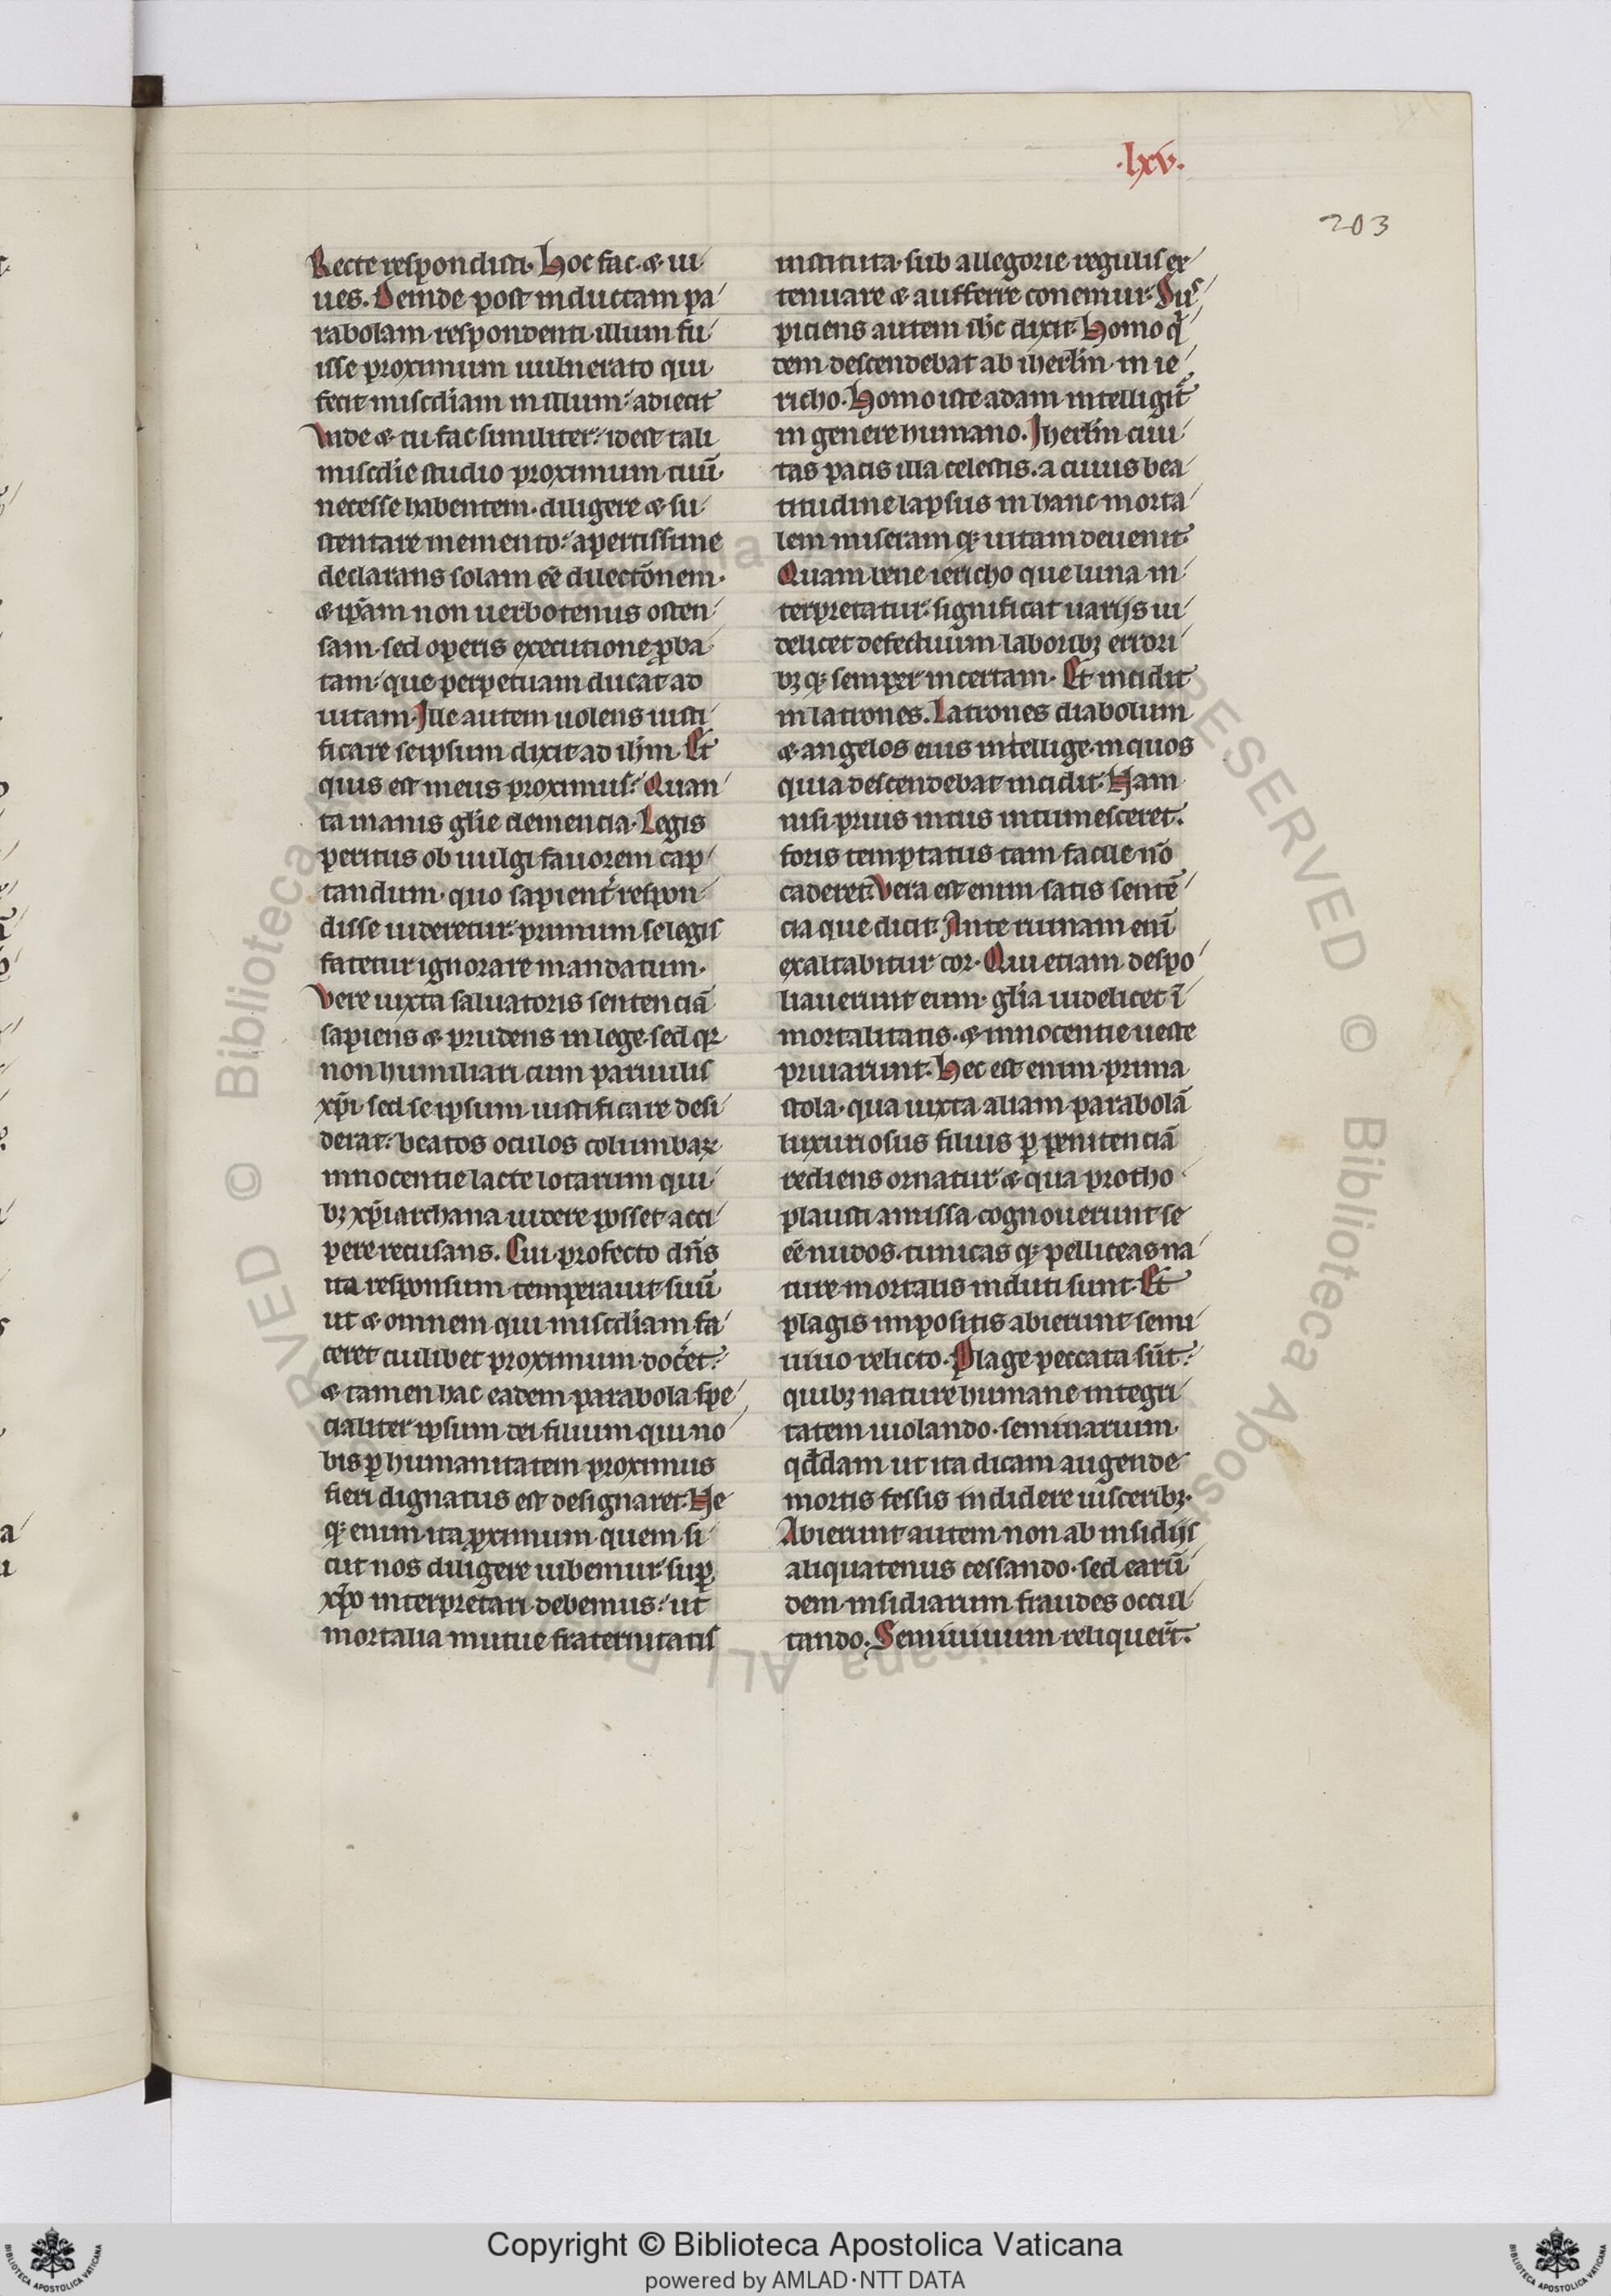 ·lxv·
203
Recte respondisti· Hoc fac· & ui/
ues. Deinde post inductam pa/
rabolam· respondenti· illum fu/
isse proximum uulnerato qui·
fecit misc̄diam in illum:/ adiecit
Vnde & tu fac similiter:/ idest tali
misc̄die studio proximum tuū·
necesse habentem· diligere & su/
stentare memento:/ apertissime
declarans solam eē dilectōnem·
& ip̄am non uerbotenus osten/
sam· sed operis executione ꝓba/
tam:/ que perpetuam ducat ad
uitam· Ille autem uolens iusti/
ficare seipsum dixit ad ih̄m· Et
quis est meus proximus:/ Quan/
ta inanis gl̄ie demencia· Legis
peritus ob uulgi fauorem cap/
tandum· quo sapient̉ respon/
disse uideretur:/ primum se legis
fatetur ignorare mandatum·
Vere iuxta saluatoris sentenciā
sapiens & prudens in lege· sed qꝛ
non humiliari cum paruulis
xp̄i· sed se ipsum· iustificare desi/
derat:/ beatos oculos columbaꝝ
innocentie lacte lotarum qui/
bꝫ xp̄i archana uidere posset acci/
pere recusans. Cui profecto dn̄s
ita responsum temperauit suū
ut & omnem qui misc̄diam fa/
ceret cuilibet proximum doc̉et:/
& tamen hac eadem parabola spe/
cialiter ipsum dei filium qui no/
bis ꝑ humanitatem proximus
fieri dignatus est designaret· Ne
qꝫ enim ita ꝓximum quem si/
cut nos diligere iubemur:/ suꝑ
xp̄o interpretari debemus:/ ut
mortalia mutue fraternitatis
instituta· sub allegorie regulis ex/
tenuare & aufferre conemur· Sus/
piciens autem ih̄c dixit· Homo q̇/
dem descendebat ab iherl̄m· in ie/
richo. Homo iste adam intelligit̉
in genere humano. Iherl̄m ciui/
tas pacis illa celestis. a cuius bea/
titudine lapsus in hanc morta/
lem miseram qꝫ uitam deuenit·
Quam bene iericho que luna in/
terpretatur:/ significat uarijs ui/
delicet defectuum laboribꝫ errori/
bꝫ qꝫ semper incertam· Et incidit
in latrones. Latrones diabolum
& angelos eius intellige· in quos
quia descendebat incidit· Nam
nisi prius intus intumesceret:
foris temptatus tam facile nō
caderet· Vera est enim satis sentē/
cia que dicit· Ante ruinam enī
exaltabitur cor· Qui etiam despo/
liauerunt eum· gl̄ia uidelicet ī/
mortalitatis· & innocentie ueste
priuarunt· Hec est enim prima
stola· qua iuxta aliam parabolā
luxuriosus filius ꝑ penitenciā
rediens ornatur:/ & qua protho/
plausti amissa cognouerunt se
eē nudos· tunicas qꝫ pelliceas na/
ture mortalis induti sunt· Et
plagis impositis abierunt semi/
uiuo relicto. Plage peccata sūt:/
quibꝫ nature humane integri/
tatem uiolando· seminarium·
qd̄dam ut ita dicam augende
mortis fessis indidere uisceribꝫ·
Abierunt autem non ab insidijs
aliquatenus cessando· sed earū/
dem insidiarum fraudes occul/
tando. Semiuiuum reliquer̄t·